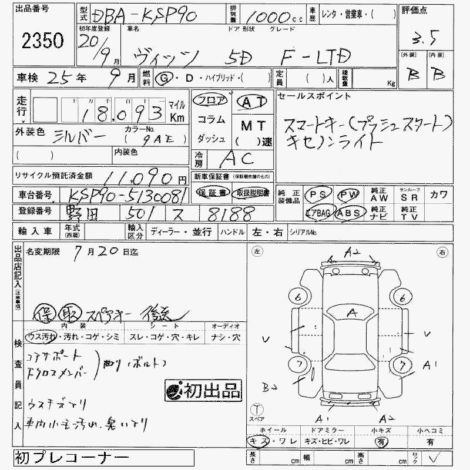 出品番号 型式 DBA-KSP90 排気量 1000cc 車歴 レンタ・営業車・( ) 評価点
2350 初年度登録 20/9月 車名 ヴィッツ ドア 形状 5D グレード F-LTD 3.5
車検 25年 9月 燃料 G・D・ハイブリッド・( ) 定員 人 積載量 Kg 外装 B 内装 B
走行 18,093 マイル Km フロア AT セールスポイント
コラム MT スマートキー(プッシュスタート)
外装色 シルバー カラーNo. 9AE ダッシュ ( )速 キセノンライト
内装色 冷房 AC
リサイクル預託済金額 11,090円 新車保証書
車台番号 KSP90-5130081 保証書 取扱説明書 純正装備品 PS PW 純正AW サンルーフ SR カワ
登録番号 野田 501 ス 8188 エアBAG ABS 純正ナビ TV
輸入車 年式 輸入区分 ディーラー・並行 ハンドル 左・右 シリアルNo.
出品店記入 名変期限 7月20日迄
左 右
A2
保 取 スペアキー 後送
内装 シート オーディオ
ウス汚れ・汚れ・コゲ・シミ スレ・コゲ・穴・キレ ナシ・穴
6 6
A
V V
検査員記入
コアサポート
クロスメンバー 曲り(ボルト)
7 7
A1
B2 A1
初出品
ウスキズ有り
A2
車内小キズ汚れ、臭い有り
スペア
ホイール ドアミラー 小キズ 小ヘコミ
キズ・ワレ キズ・ヒビ・ワレ 有 有
初プレコーナー 長さ cm 幅 cm 高さ cm